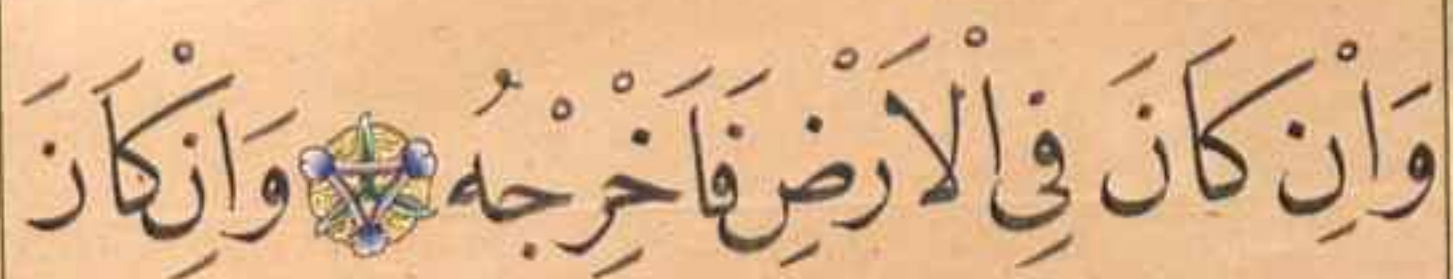 وَاِنْ كَانَ فِي اْلاَرْضِ فَاَخْرِجْهُ وَاِنْ كَانَ